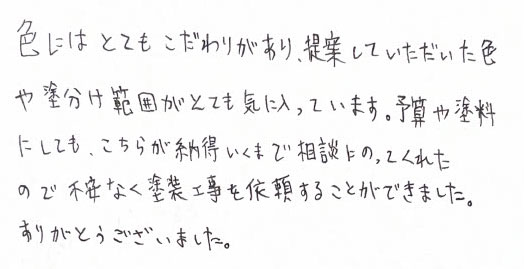 色にはとてもこだわりがあり、提案していただいた色
や塗分け範囲がとても気に入っています。予算や塗料
にしても、こちらが納得いくまで相談にのってくれた
ので不安なく塗装工事を依頼することができました。
ありがとうございました。